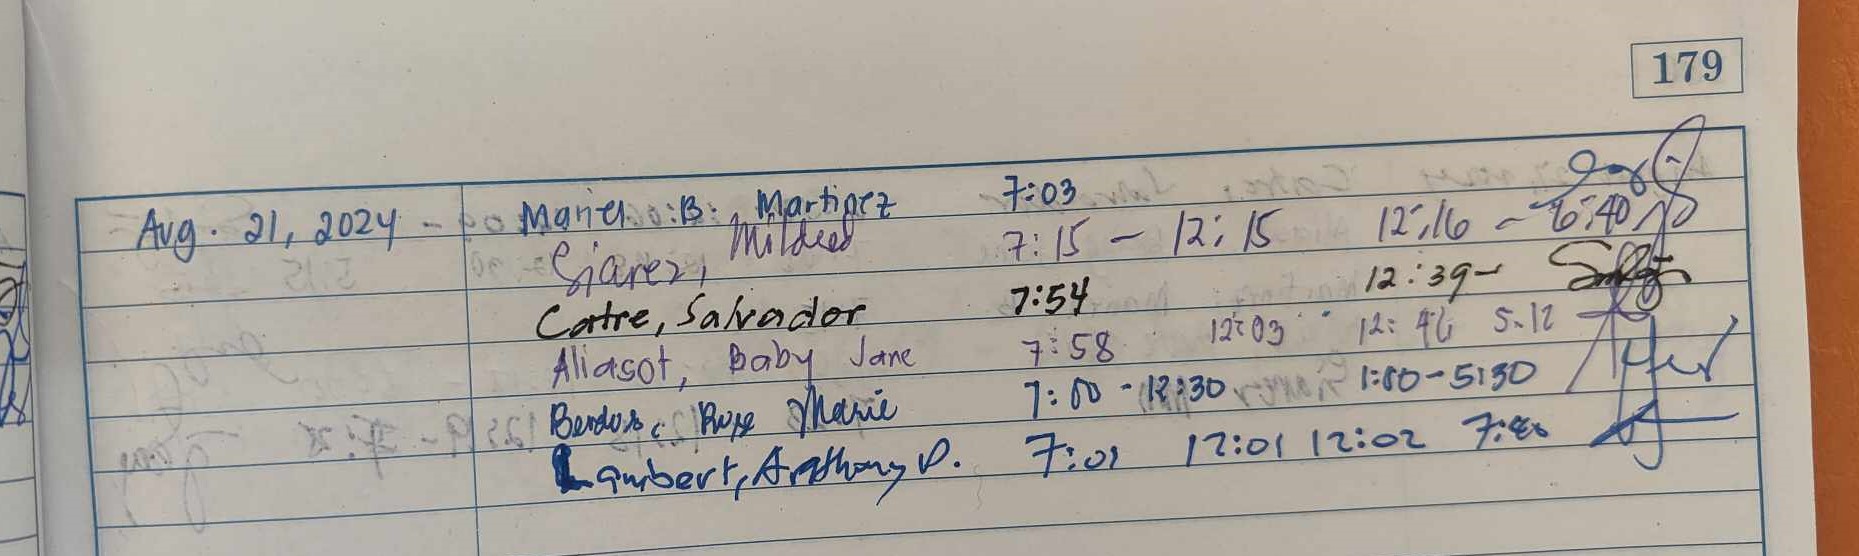 179
Aug. 21, 2024 - Mariel B. Martinez 7:03
Mildred 7:15 - 12:15 12:16 - 6:40
Catre, Salvador 7:54 12:39-
Aliasot, Baby Jane 7:58 12:03 12:46 5:12
Rose Marie 7:00 - 12:30 1:00-5:30
Lambert, Anthony D. 7:01 12:01 12:02